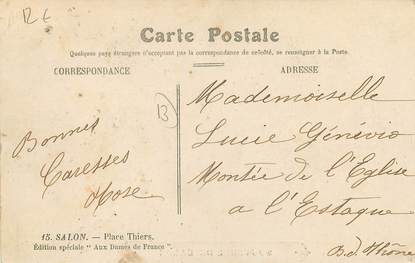 12 €
Carte Postale
Quelques pays étrangers n'acceptant pas la correspondance de ce côté, se renseigner à la Poste.
CORRESPONDANCE
ADRESSE
13
Bonnes
Caresses
Rose
Mademoiselle
Lucie Génévio
Montée de l'Eglise
a l'Estaque
B. d. Rhône
15. SALON. — Place Thiers.
Édition spéciale " Aux Dames de France "